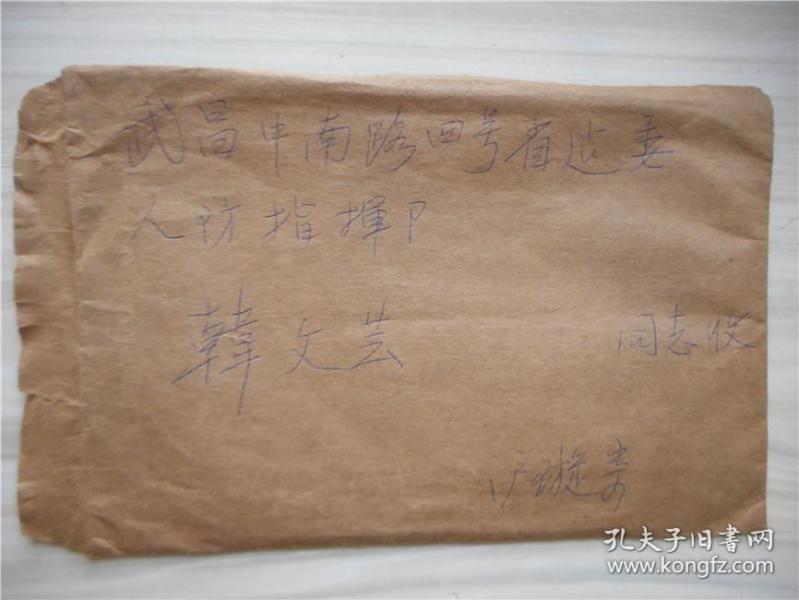 武昌中南路四号省建委
人防指揮卩
韓文芸
同志收
沪璇寄
孔夫子旧書网
www.kongfz.com